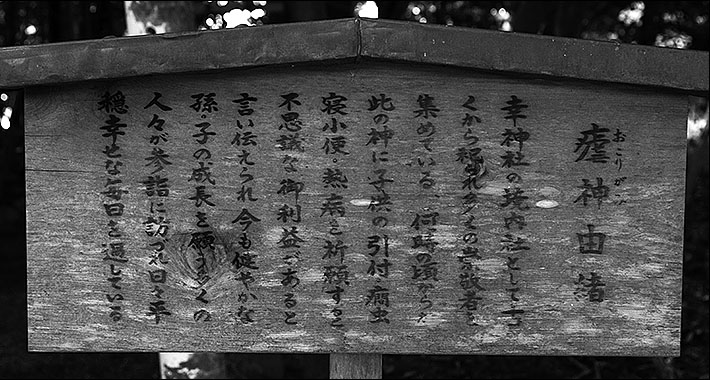 瘧神由緒
おこりがみ
幸神社の境内社として古
くから福われ多くの崇敬者を
集めている、何時の頃からか
此の神に子供の引付、病虫
寝小便、熱病を祈願すると
不思議な御利益があると
言い伝えられ今も健やかな
孫、子の成長を願う多くの
人々が参詣に訪づれ日々平
穏幸せな毎日を過している